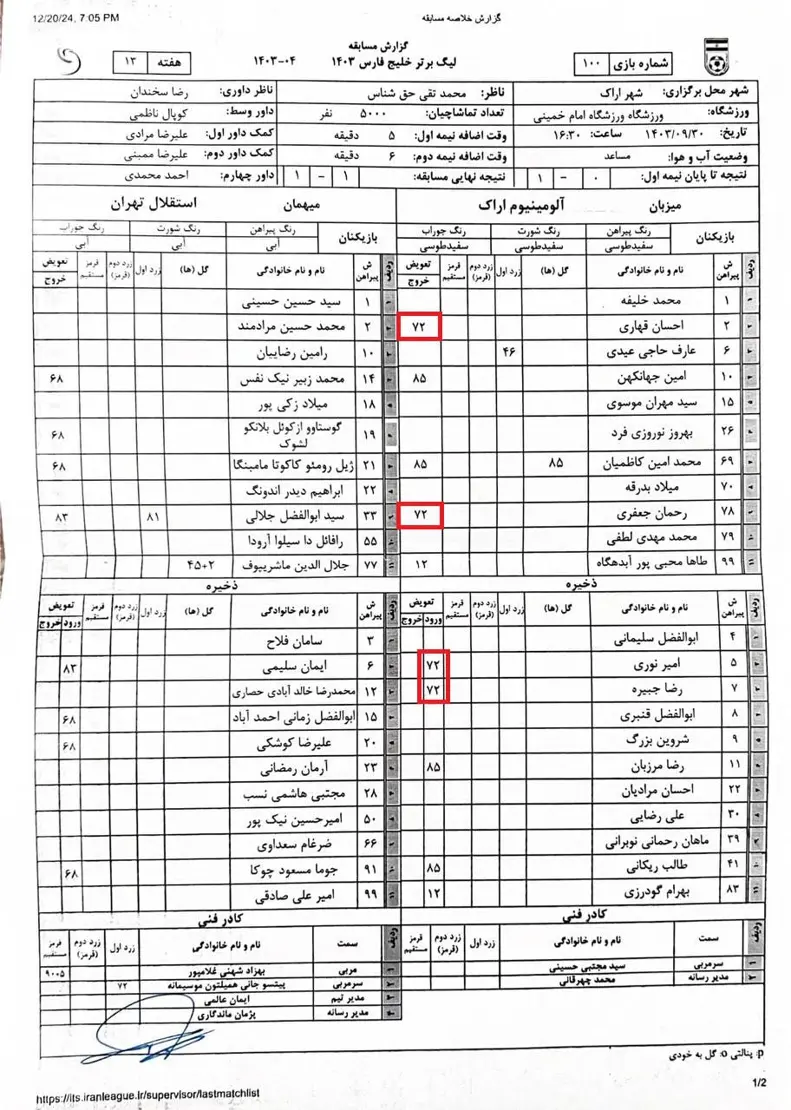 12/20/24, 7:05 PM
گزارش خلاصه مسابقه
گزارش مسابقه
شماره بازی ۱۰۰
لیگ برتر خلیج فارس ۱۴۰۳ ۱۴۰۳-۰۴
هفته ۱۳
شهر محل برگزاری: شهر اراک
ناظر: محمد تقی حق شناس
ناظر داوری: رضا سخندان
ورزشگاه: ورزشگاه امام خمینی
تعداد تماشاچیان: ۵۰۰۰ نفر
داور وسط: کوپال ناظمی
تاریخ: ۱۴۰۳/۰۹/۳۰ ساعت: ۱۶:۳۰
وقت اضافه نیمه اول: ۵ دقیقه
کمک داور اول: علیرضا مرادی
وضعیت آب و هوا: مساعد
وقت اضافه نیمه دوم: ۶ دقیقه
کمک داور دوم: علیرضا ممبنی
نتیجه تا پایان نیمه اول: ۰ - ۱
نتیجه نهایی مسابقه: ۱ - ۱
داور چهارم: احمد محمدی
میزبان آلومینیوم اراک
میهمان استقلال تهران
بازیکنان رنگ پیراهن رنگ شورت رنگ جوراب
سفیدطوسی سفیدطوسی سفیدطوسی
بازیکنان رنگ پیراهن رنگ شورت رنگ جوراب
آبی آبی آبی
ردیف ش پیراهن نام و نام خانوادگی گل (ها) زرد اول زرد دوم (قرمز) قرمز مستقیم تعویض خروج
۱ محمد خلیفه
۲ احسان قهاری ۷۲
۶ عارف حاجی عیدی ۴۶
۱۰ امین جهانکهن ۸۵
۱۵ سید مهران موسوی
۲۶ بهروز نوروزی فرد
۶۹ محمد امین کاظمیان ۸۵ ۸۵
۷۰ میلاد بدرقه
۷۸ رحمان جعفری ۷۲
۷۹ محمد مهدی لطفی
۹۹ طاها محبی پور آبدهگاه ۱۲
ردیف ش پیراهن نام و نام خانوادگی گل (ها) زرد اول زرد دوم (قرمز) قرمز مستقیم تعویض خروج
۱ سید حسین حسینی
۲ محمد حسین مرادمند
۱۰ رامین رضاییان
۱۴ محمد زبیر نیک نفس ۶۸
۱۸ میلاد زکی پور
۱۹ گوستاوو ازکوئل بلانکو لشوک ۶۸
۲۱ ژیل رومئو کاکوتا مامبنگا ۶۸
۲۲ ابراهیم دیدر اندونگ
۳۳ سید ابوالفضل جلالی ۸۱ ۸۳
۵۵ رافائل دا سیلوا آرودا
۷۷ جلال الدین ماشریپوف ۴۵+۲
ذخیره
ردیف ش پیراهن نام و نام خانوادگی گل (ها) زرد اول زرد دوم (قرمز) قرمز مستقیم تعویض ورود خروج
۴ ابوالفضل سلیمانی
۵ امیر نوری ۷۲
۷ رضا جبیره ۷۲
۸ ابوالفضل قنبری
۹ شروین بزرگ
۱۱ رضا مرزبان ۸۵
۲۲ احسان مرادیان
۳۰ علی رضایی
۳۹ ماهان رحمانی نوبرانی
۴۱ طالب ریکانی ۸۵
۸۳ بهرام گودرزی ۱۲
ذخیره
ردیف ش پیراهن نام و نام خانوادگی گل (ها) زرد اول زرد دوم (قرمز) قرمز مستقیم تعویض ورود خروج
۳ سامان فلاح
۶ ایمان سلیمی ۸۳
۱۲ محمدرضا خالد آبادی حصاری
۱۵ ابوالفضل زمانی احمد آباد ۶۸
۲۰ علیرضا کوشکی ۶۸
۲۳ آرمان رمضانی
۲۸ مجتبی هاشمی نسب
۵۰ امیرحسین نیک پور
۶۶ ضرغام سعداوی
۹۱ جوما مسعود چوکا ۶۸
۹۹ امیر علی صادقی
کادر فنی
ردیف سمت نام و نام خانوادگی زرد اول زرد دوم (قرمز) قرمز مستقیم
۱ سرمربی سید مجتبی حسینی
۲ مدیر رسانه محمد چهرقانی
کادر فنی
ردیف سمت نام و نام خانوادگی زرد اول زرد دوم (قرمز) قرمز مستقیم
۱ مربی بهزاد شهنی غلامپور ۹۰+۵
۲ سرمربی پیتسو جانی همیلتون موسیمانه ۷۲
۳ مدیر تیم ایمان عالمی
۴ مدیر رسانه پژمان ماندگاری
p: پنالتی o: گل به خودی
https://its.iranleague.ir/supervisor/lastmatchlist
1/2